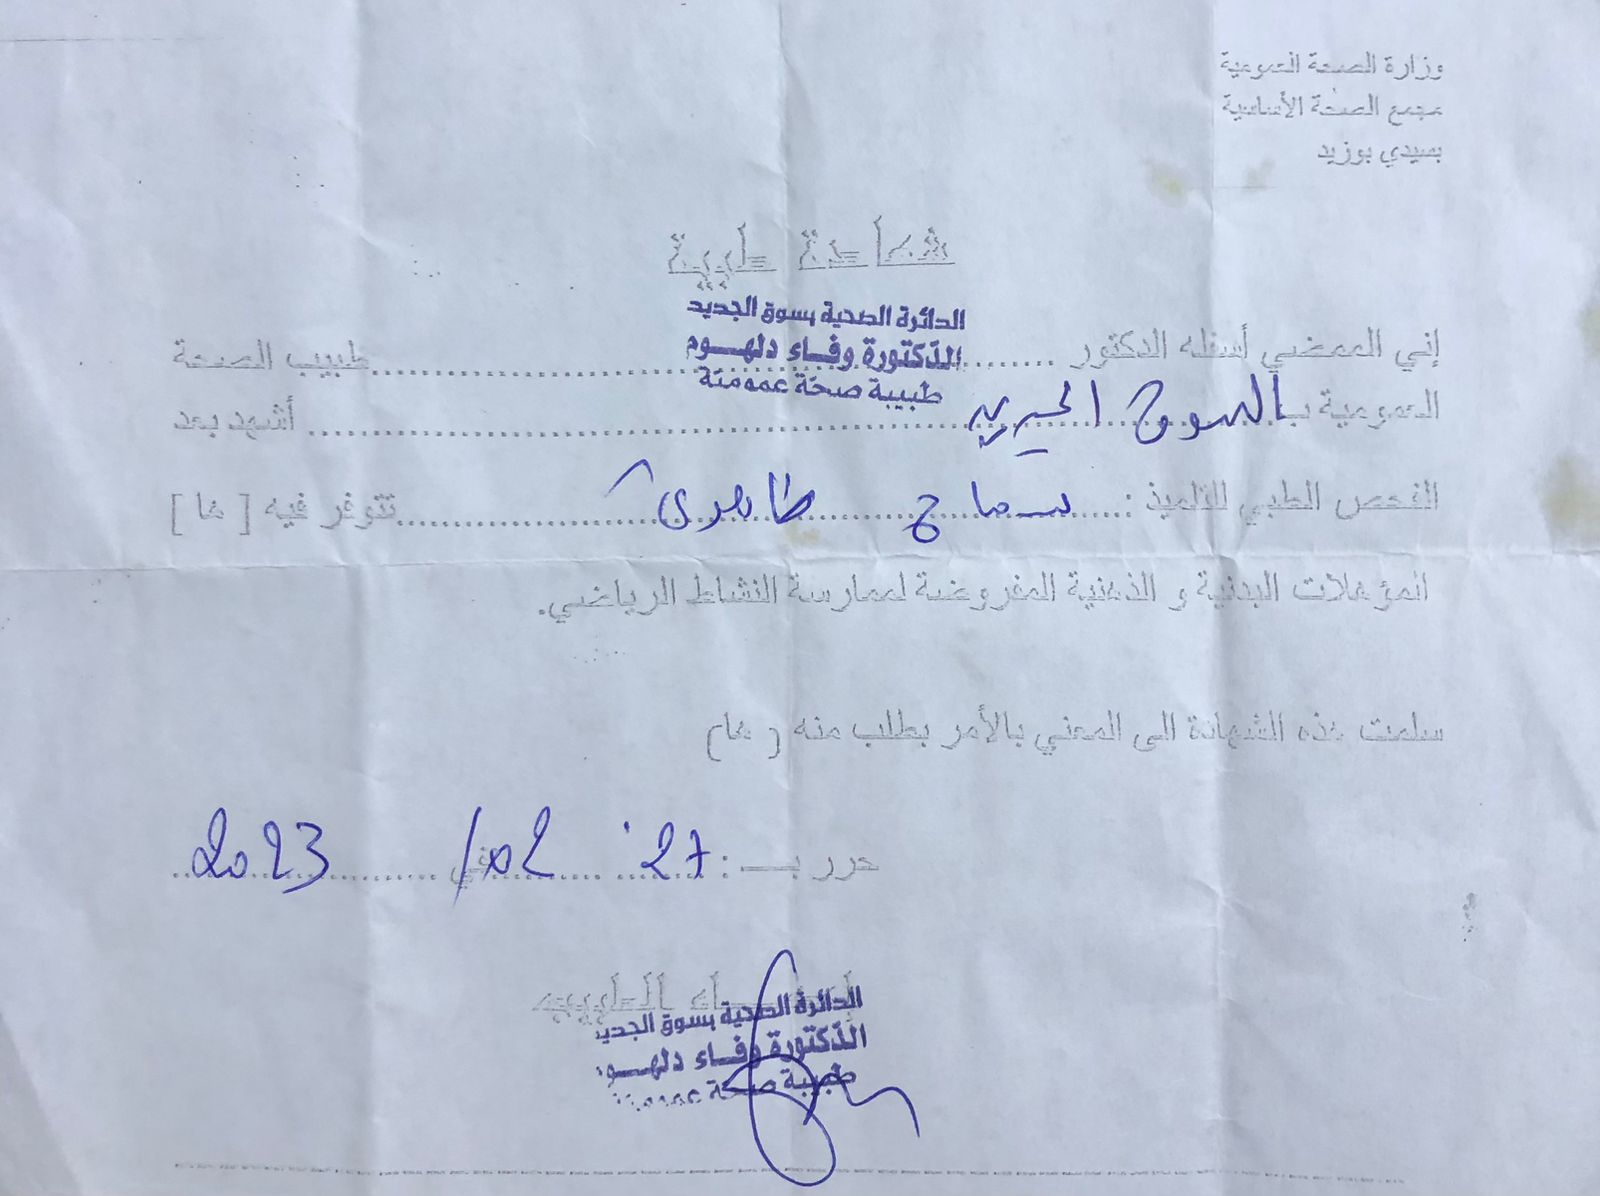 وزارة الصحة العمومية
مجمع الصحة الأساسية
بسيدي بوزيد
شهادة طبية
الدائرة الصحية بسوق الجديد
الدّكتورة وفـاء دلهـوم
طبيبة صحّة عموميّة
إني الممضي أسفله الدكتور ............ طبيب الصحة
العمومية بـ السوق الجديد ............ أشهد بعد
الفحص الطبي للتلميذ : سماح طاهري ............ تتوفر فيه [ ها ]
المؤهلات البدنية و الذهنية المفروضة لممارسة النشاط الرياضي.
سلمت هذه الشهادة الى المعني بالأمر بطلب منه ( ها)
حرر بـ : 27 في 02 / 2023
إمضاء الطبيب
الدائرة الصحية بسوق الجديد
الدّكتورة وفـاء دلهـوم
طبيبة صحّة عموميّة